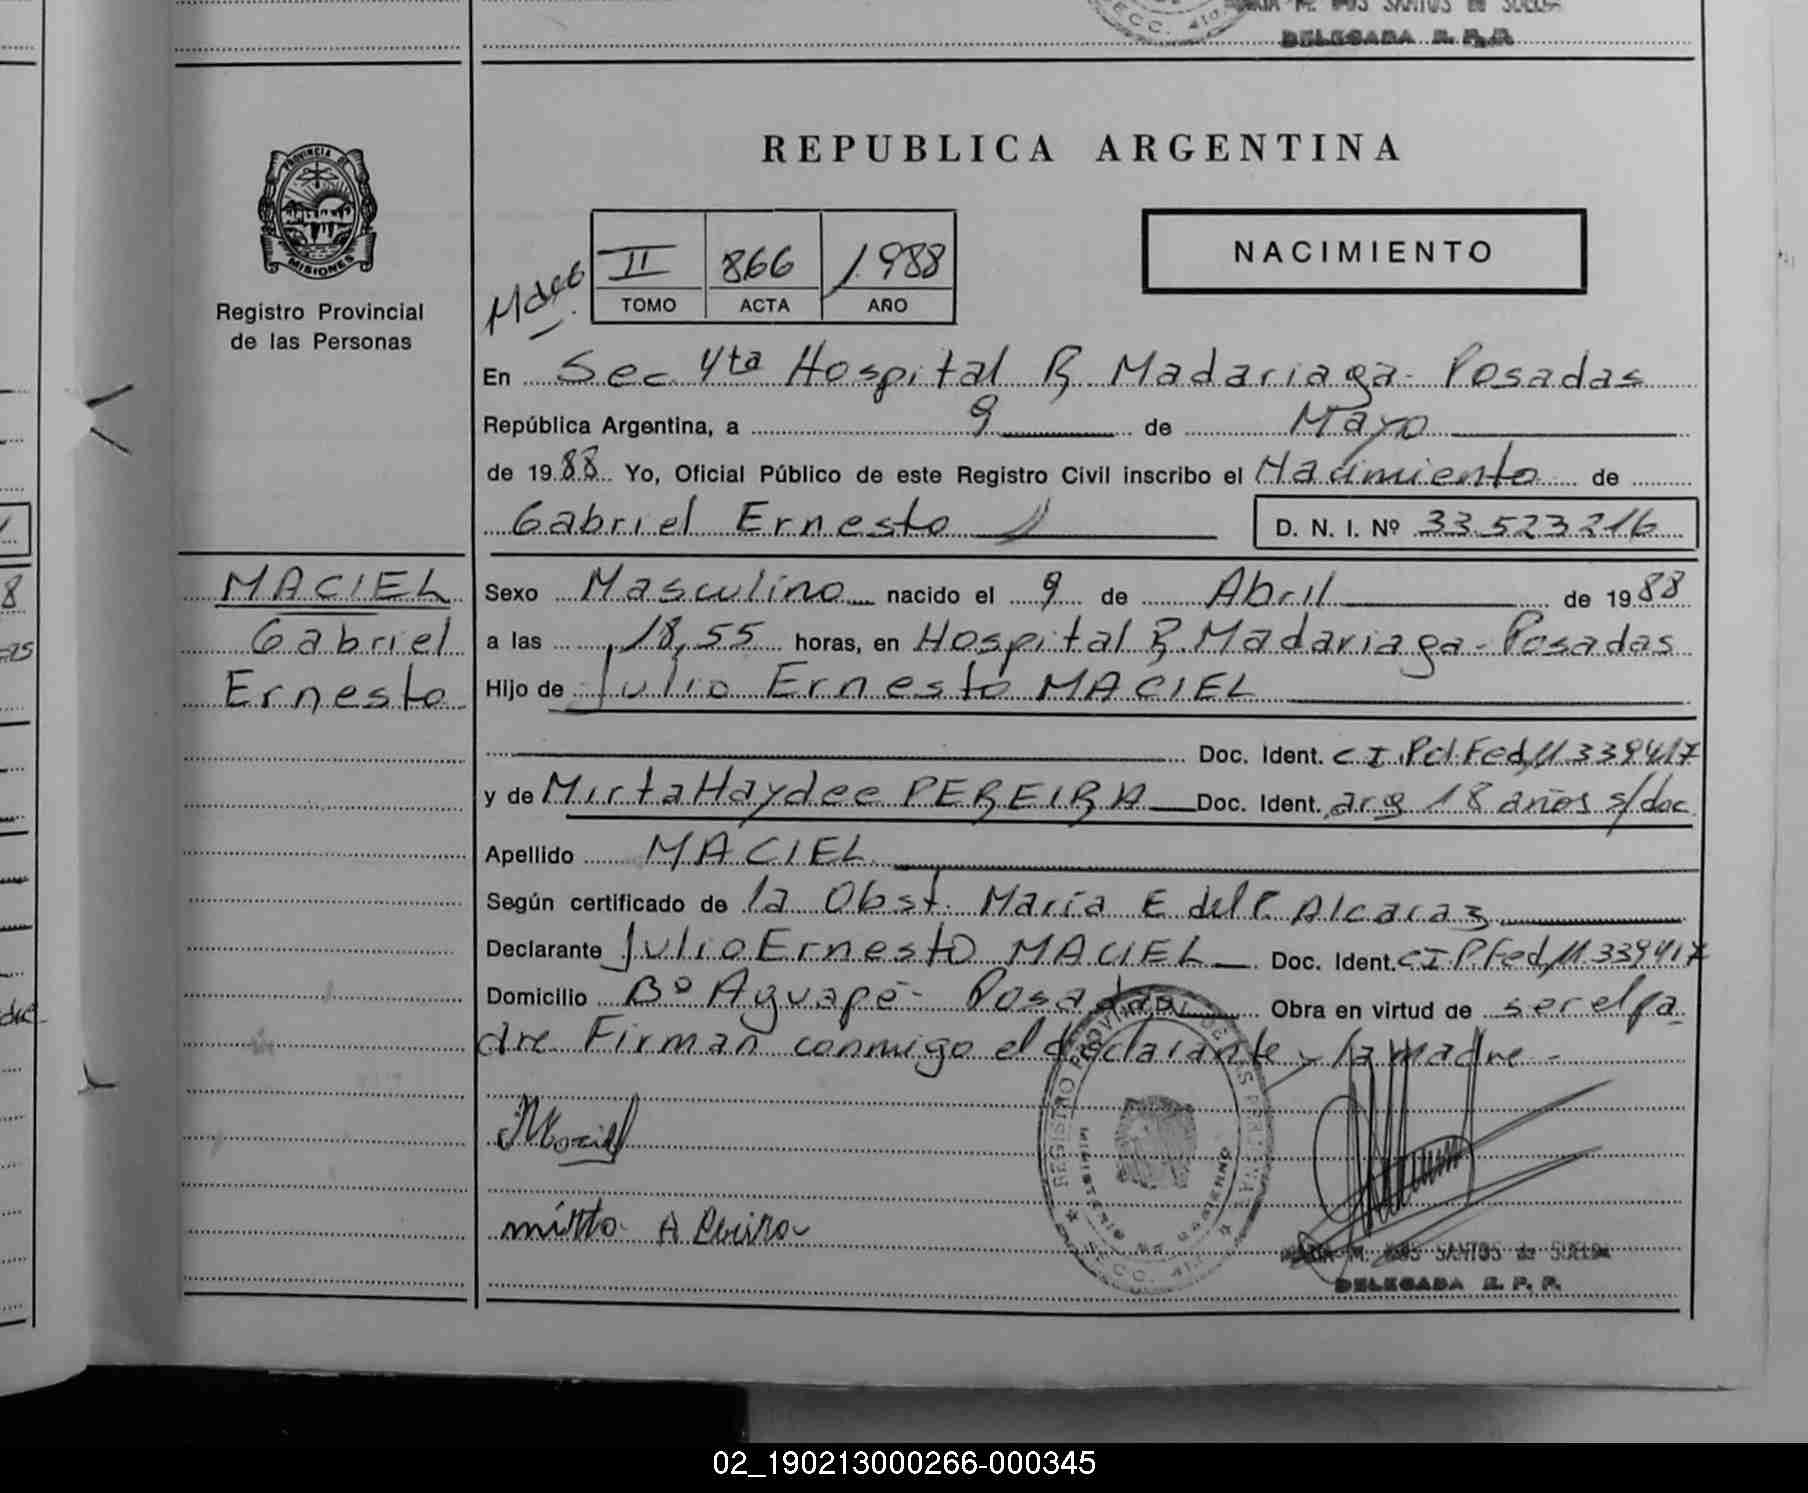 DELEGADA R. P. P.
REPUBLICA ARGENTINA
PROVINCIA DE
MISIONES
Registro Provincial
de las Personas
II 866 1988
TOMO ACTA AÑO
NACIMIENTO
En Sec 4ta Hospital R. Madariaga - Posadas
República Argentina, a 9 de Mayo
de 1988 Yo, Oficial Público de este Registro Civil inscribo el Nacimiento de
Gabriel Ernesto D. N. I. Nº 33.523.216
MACIEL
Gabriel
Ernesto
Sexo Masculino nacido el 9 de Abril de 1988
a las 18,55 horas, en Hospital R. Madariaga - Posadas
Hijo de Julio Ernesto MACIEL
Doc. Ident. C I Pcl. Fed. 11339417
y de Mirta Haydee PEREIRA Doc. Ident. arg 18 años s/doc
Apellido MACIEL
Según certificado de la Obst. María E del P. Alcaraz
Declarante Julio Ernesto MACIEL Doc. Ident. C I P. Fed. 11339417
Domicilio Bº Aguapé - Posadas Obra en virtud de ser el pa
dre Firman conmigo el declarante y la madre -
REGISTRO PROVINCIAL DE LAS PERSONAS
MINISTERIO DE GOBIERNO
SECC. 4ta
JMaciel
mirta A Pereira
MARIA M. DOS SANTOS de SUELDA
DELEGADA R. P. P.
02_190213000266-000345